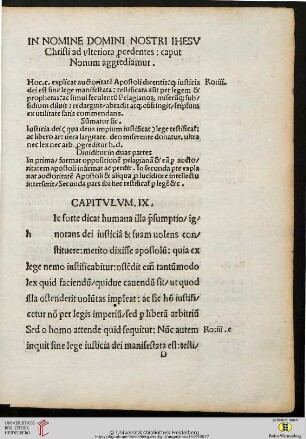 IN NOMINE DOMINI NOSTRI IHESV
Christi ad vlteriora pərdentes: caput
Nonum aggrediamur.
Hoc.c. explicat auctoritatē Apostoli dicentis: q iusticia Ro:iii.
dei est sine lege manifestata: testificata aūt per legem &
prophetas: ac simul secalentū Pelagianoꝝ, miserūq; sub/
sidium diluit: redarguit: abradit atq; cōstringit: seipsum
ex vtilitate sancti commendans.
Sūmatur sic.
Iusticia dei (qua deus impium iustificat) lege testificat:
ac libero arbitrio largitate. deo miserente donatur, ultra
nec lex nec arb. pgreditur h.d.
Diuiditur in duas partes
In prima/format oppositionē pelagianā & eā p aucto/
ritatem apostoli informat ac perdit. In secunda pte expla
nat auctoritatē Apostoli & aliqua p lucidiore intellectu
interserit/Secunda pars ibi hec testificat p legē & c.
CAPITVLVM. IX.
Ic forte dicat humana illa p̄sumptio/ig/
norans dei iusticiā & suam uolens con/
stituere: merito dixisse apostolū: quia ex
lege nemo iustificabitur: ostēdit em̄ tantūmodo
lex quid faciendū/quidue cauendū sit/ut quod
illa ostenderit uolūtas impleat: ac sic hō iustifi/
cetur nō per legis imperiū/sed p liberū arbitriū
Sed o homo attende quid sequitur: Nūc autem Ro:iii.c
inquit sine lege iusticia dei manifestata est: testi/
D
UNIVERSITÄTS-
BIBLIOTHEK
HEIDELBERG
© Universitätsbibliothek Heidelberg